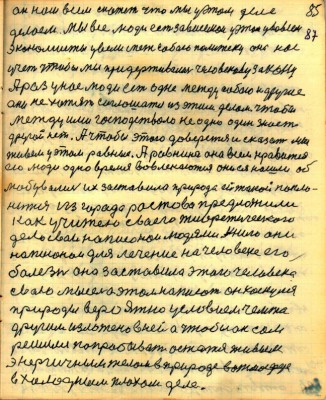 он нам всем скажет что мы в этом деле 85
делаем. Мы все люди есть зависимое у этом условии 87
экономисты увели меж собою политику она нас
учет чтобы мы придерживали человекову закону
А раз у нас люди есть одне между собою на руже
они не хотят соглашати из этим делом. чтобы
между ими господствовало не одно один знает
другой нет. А чтобы этого доверется и сказат мы
живем у этом равные. А равнина она всем нравится
его люди одно время вовлекаются они ся нашли об
их заставила природа ей такой покло-
нится из города ростова предложили
как учителю своего теоретического
дело свои написоной людями книго они
написоной для лечение на человеке его
болезн она заставила этого человека
свою мысел в этом написат он коснулся
природы вероятно условием чем та
другим изложено в ней а чтобы он сам
решили попробыват остатя живым
энергичным телом в природе в атмосфере
в холодным плохом деле.